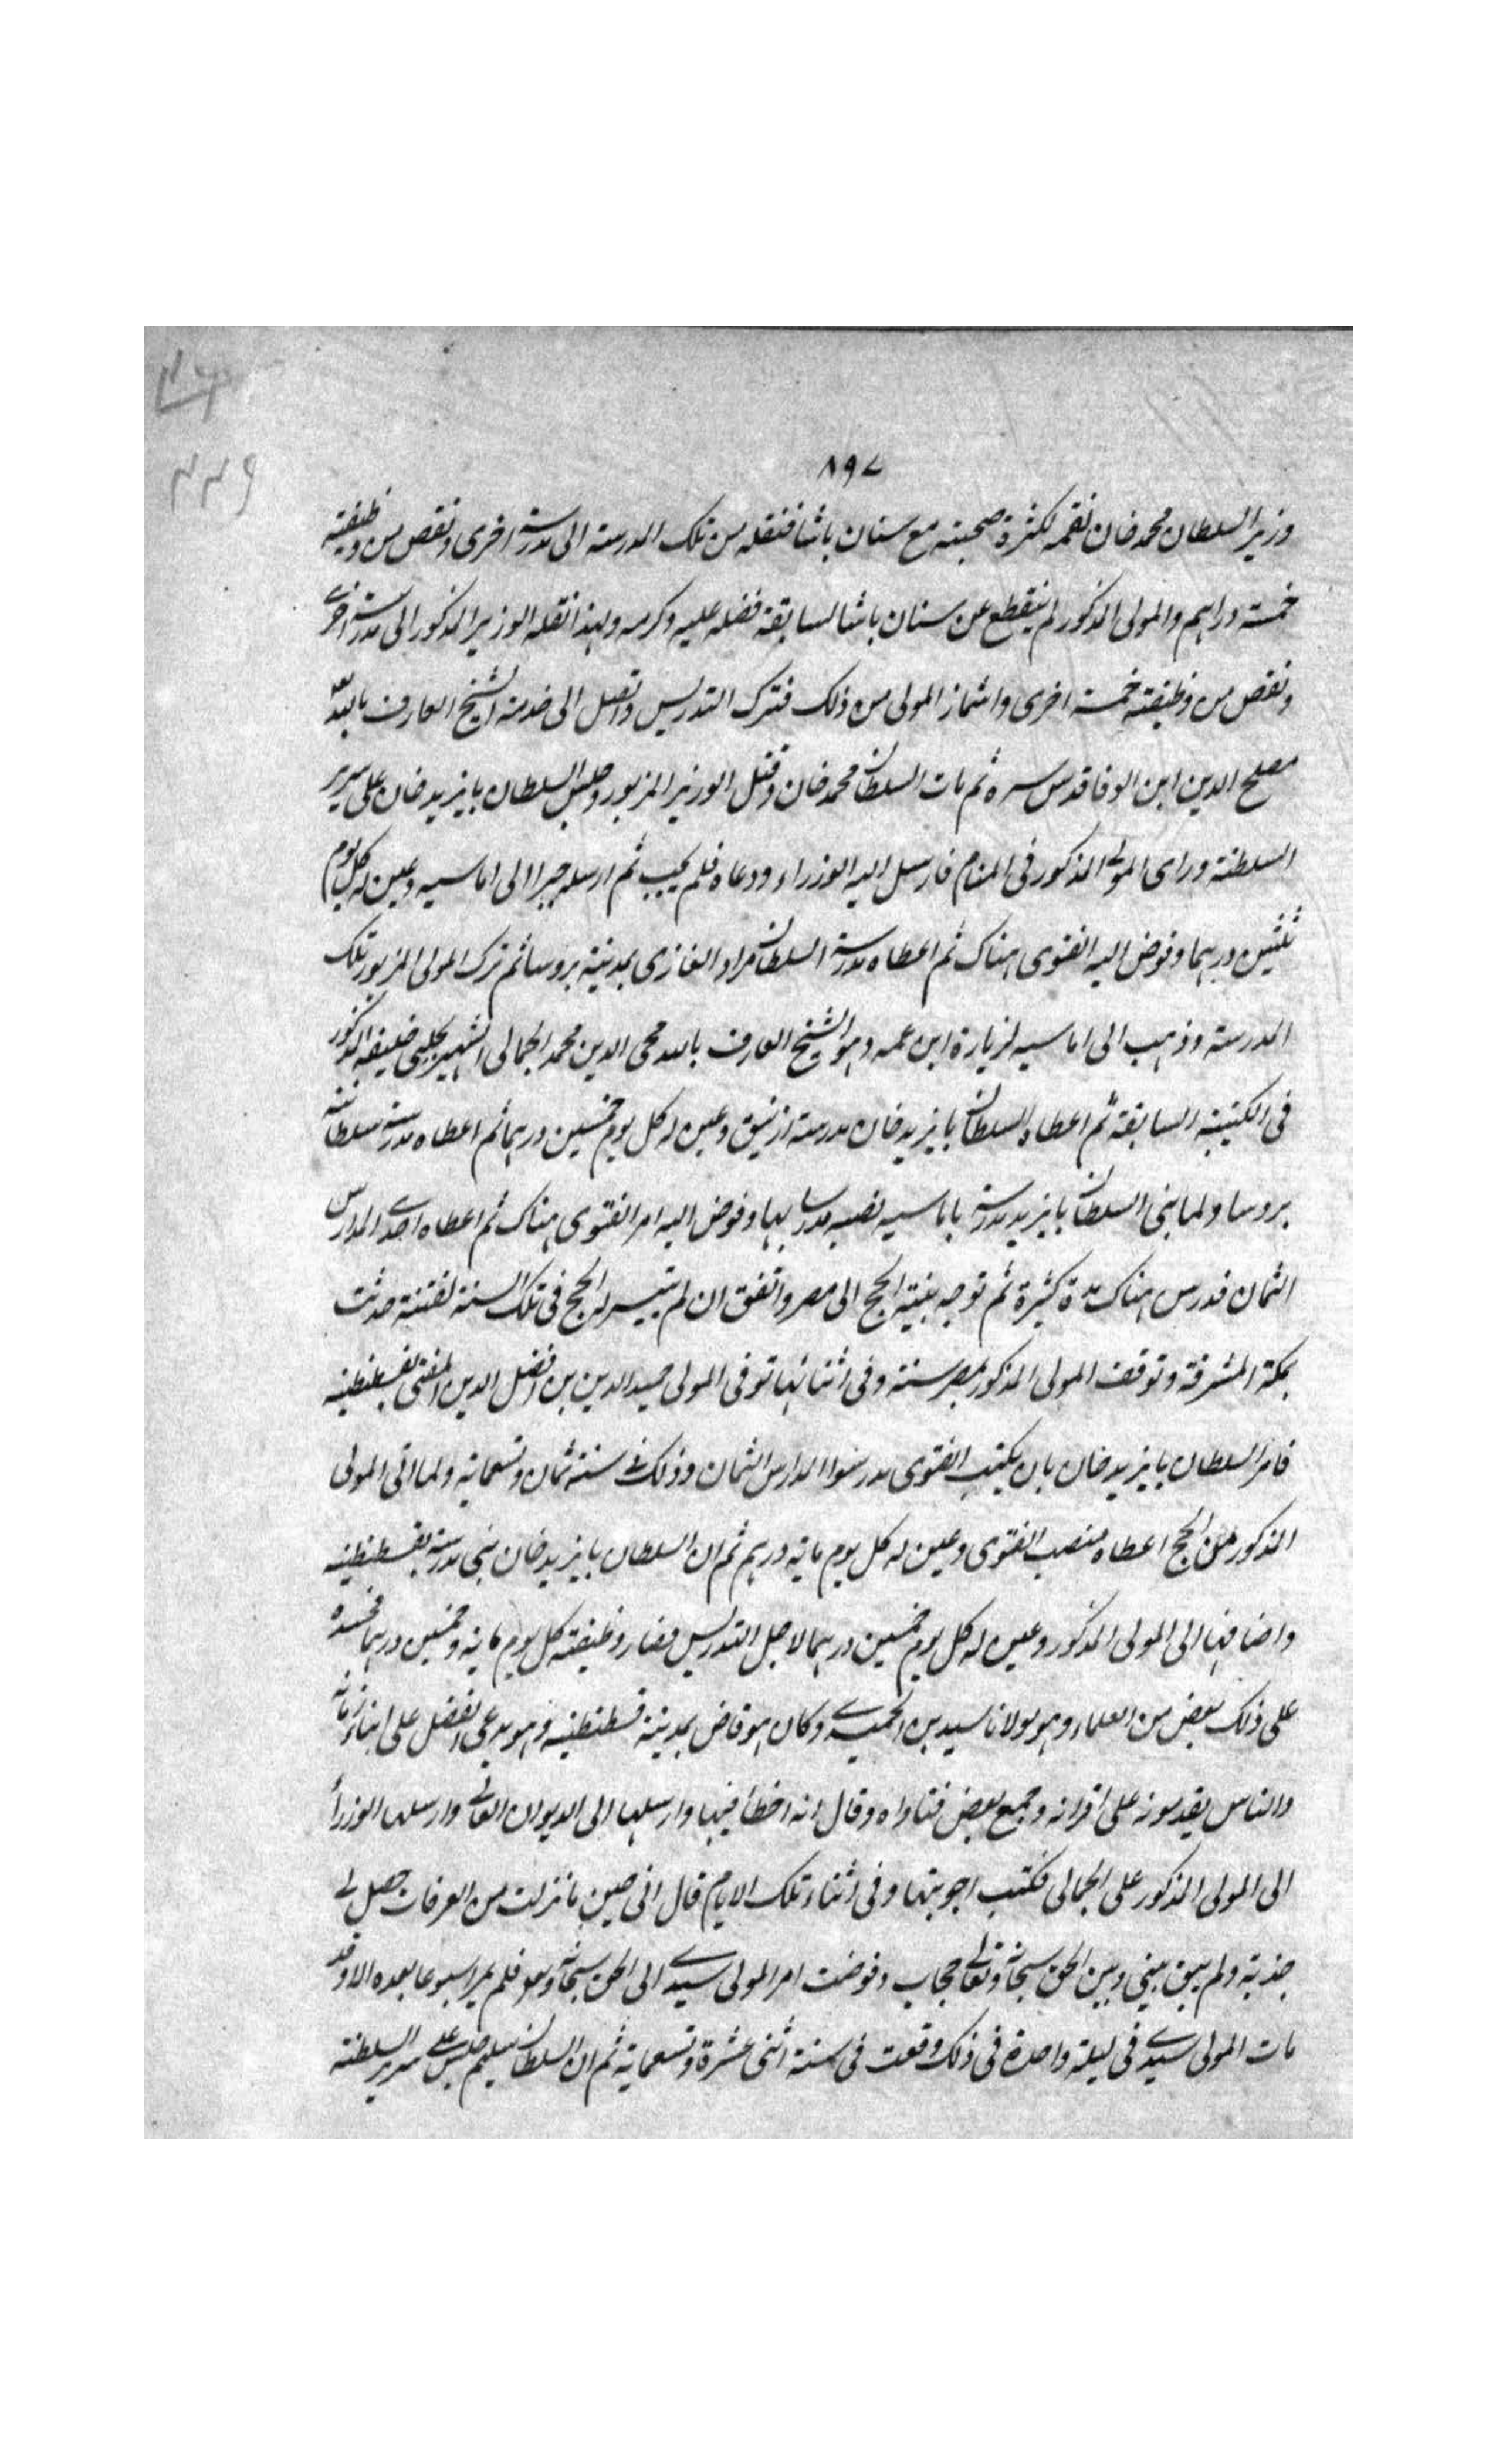 ٨٩٧
٣٣٩
وزير السلطان محمد خان نقمه لكثرة صحبته مع سنان باشا فنقله من تلك المدرسة الى مدرسة اخرى ونقص من وظيفته
خمسة دراهم والمولى المذكور لم ينقطع عن سنان باشا لسابقة فضله عليه وكرمه ولهذا نقله الوزير المذكور الى مدرسة اخرى
ونقص من وظيفته خمسة اخرى واشماز المولى من ذلك فترك التدريس واتصل الى خدمة الشيخ العارف بالله
مصلح الدين ابن الوفا قدس سره ثم مات السلطان محمد خان وقتل الوزير المزبور وجلس السلطان بايزيد خان على سرير
السلطنة وراى المولى المذكور فى المنام فارسل اليه الوزراء ودعاه فلم يجب ثم ارسله جبرا الى اماسيه وعين له كل يوم
ثلثين درهما وفوض اليه الفتوى هناك ثم اعطاه مدرسة السلطان مراد الغازى بمدينة بروسا ثم ترك المولى المزبور تلك
المدرسة وذهب الى اماسيه لزيارة ابن عمه وهو الشيخ العارف بالله محى الدين محمد الجمالى الشهير بچلبى خليفه المذكور
فى الكتيبة السابقة ثم اعطاه السلطان بايزيد خان مدرسة ازنيق وعين له كل يوم خمسين درهما ثم اعطاه مدرسة سلطانية
بروسا ولما بنى السلطان بايزيد مدرسة باماسيه نصبه مدرسا بها وفوض اليه امر الفتوى هناك ثم اعطاه احدى المدارس
الثمان فدرس هناك مدة كثيرة ثم توجه بنية الحج الى مصر واتفق ان لم يتيسر له الحج فى تلك السنة لفتنة حدثت
بمكة المشرفة وتوقف المولى المذكور بمصر سنة وفى اثنائها توفى المولى حميد الدين بن افضل الدين المفتى بقسطنطينيه
فامر السلطان بايزيد خان بان يكتب الفتوى مدرسوا المدارس الثمان وذلك فى سنة ثمان وتسعماية ولما اتى المولى
المذكور من الحج اعطاه منصب الفتوى وعين له كل يوم ماية درهم ثم ان السلطان بايزيد خان بنى مدرسة بقسطنطينيه
واضافها الى المولى المذكور وعين له كل يوم خمسين درهما لاجل التدريس فصار وظيفته كل يوم ماية وخمسين درهما فحسده
على ذلك بعض من العلماء وهو مولانا سيدى الحميدى وكان هو قاض بمدينة قسطنطينيه وهو يدعى الفضل على ابناء زمانه
والناس يقدمونه على اقرانه وجمع بعض فتاواه وقال انه اخطأ فيها وارسلها الى الديوان العالى وارسلها الوزرأ
الى المولى المذكور على الجمالى فكتب اجوبتها وفى اثناء تلك الايام قال انى حين ما نزلت من العرفات حصل لى
جذبة ولم يبق بينى وبين الحق سبحانه وتعالى حجاب وفوضت امر المولى سيدى الى الحق سبحانه وتعالى فلم يمر اسبوعا بعده الا وقد
مات المولى سيدى فى ليلة واحدة فى ذلك وقعت فى سنة اثنى عشرة وتسعماية ثم ان السلطان سليم جلس على سرير السلطنة